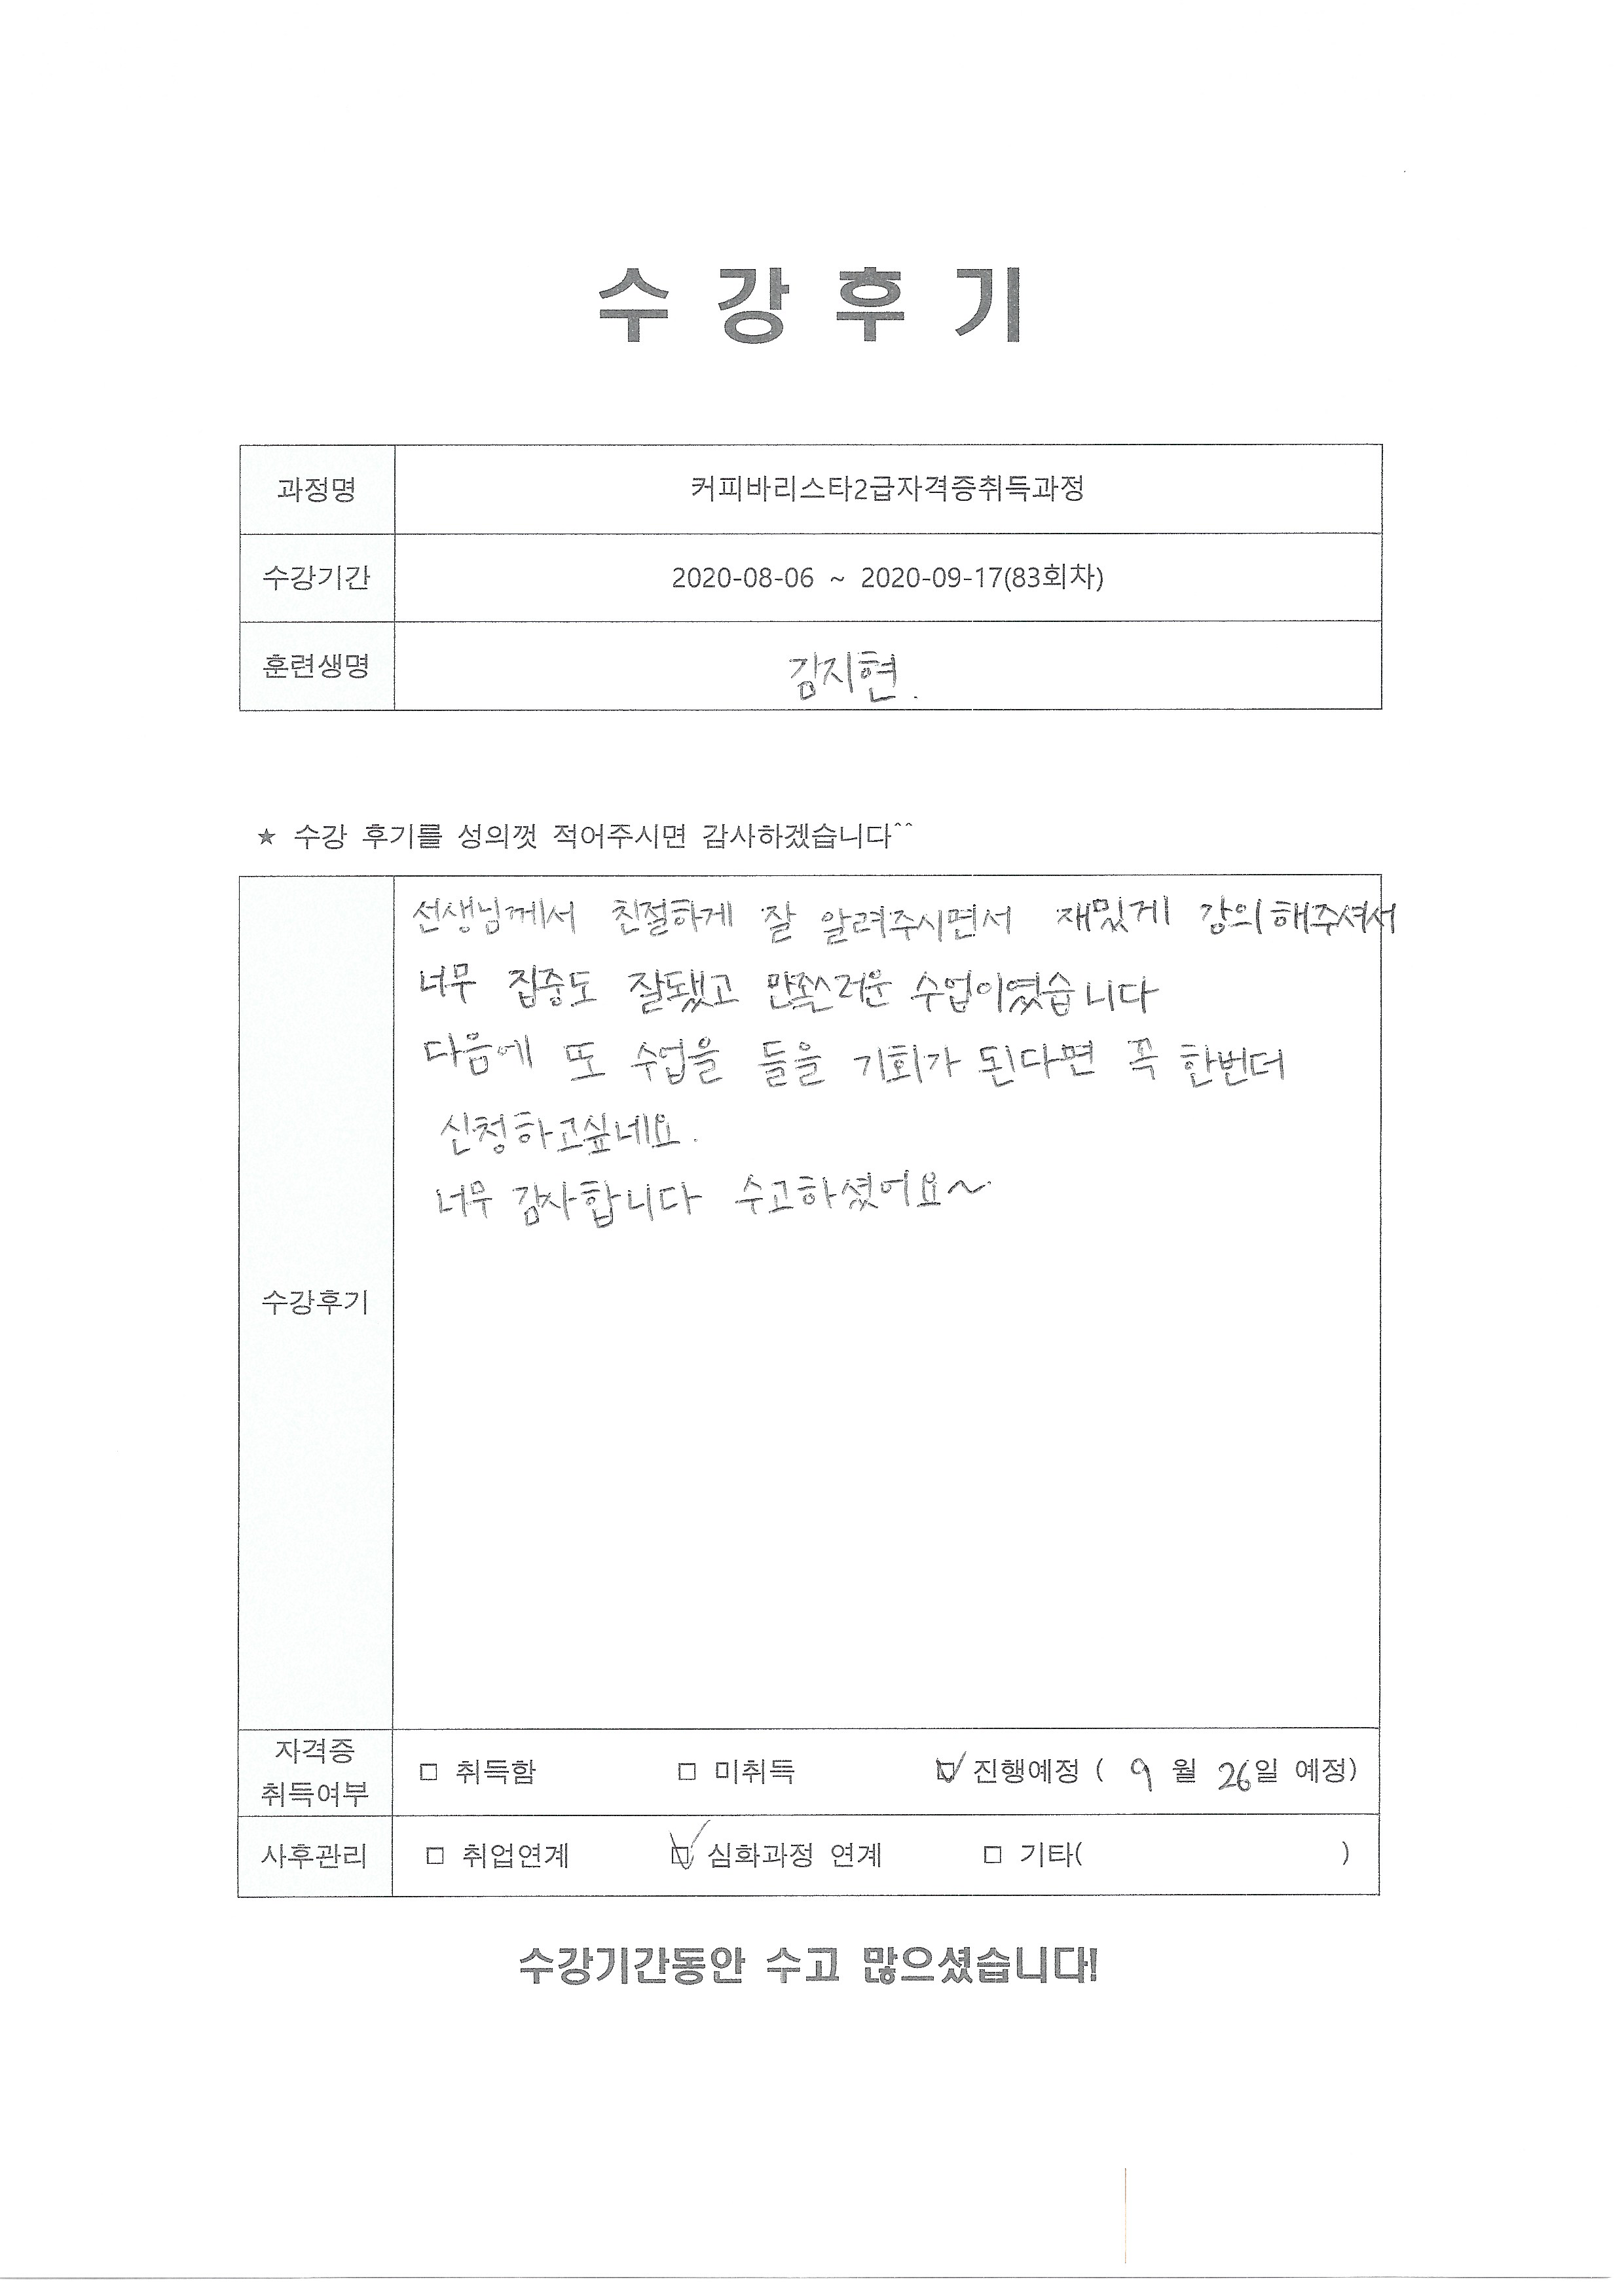 수 강 후 기
과정명 커피바리스타2급자격증취득과정
수강기간 2020-08-06 ~ 2020-09-17(83회차)
훈련생명 김지현.
★ 수강 후기를 성의껏 적어주시면 감사하겠습니다^^
선생님께서 친절하게 잘 알려주시면서 재밌게 강의해주셔서
너무 집중도 잘됐고 만족스러운 수업이였습니다
다음에 또 수업을 들을 기회가 된다면 꼭 한번더
신청하고싶네요.
너무 감사합니다 수고하셨어요~
수강후기
자격증
취득여부
□ 취득함 □ 미취득 ☑ 진행예정 ( 9 월 26일 예정)
사후관리 □ 취업연계 ☑ 심화과정 연계 □ 기타( )
수강기간동안 수고 많으셨습니다!